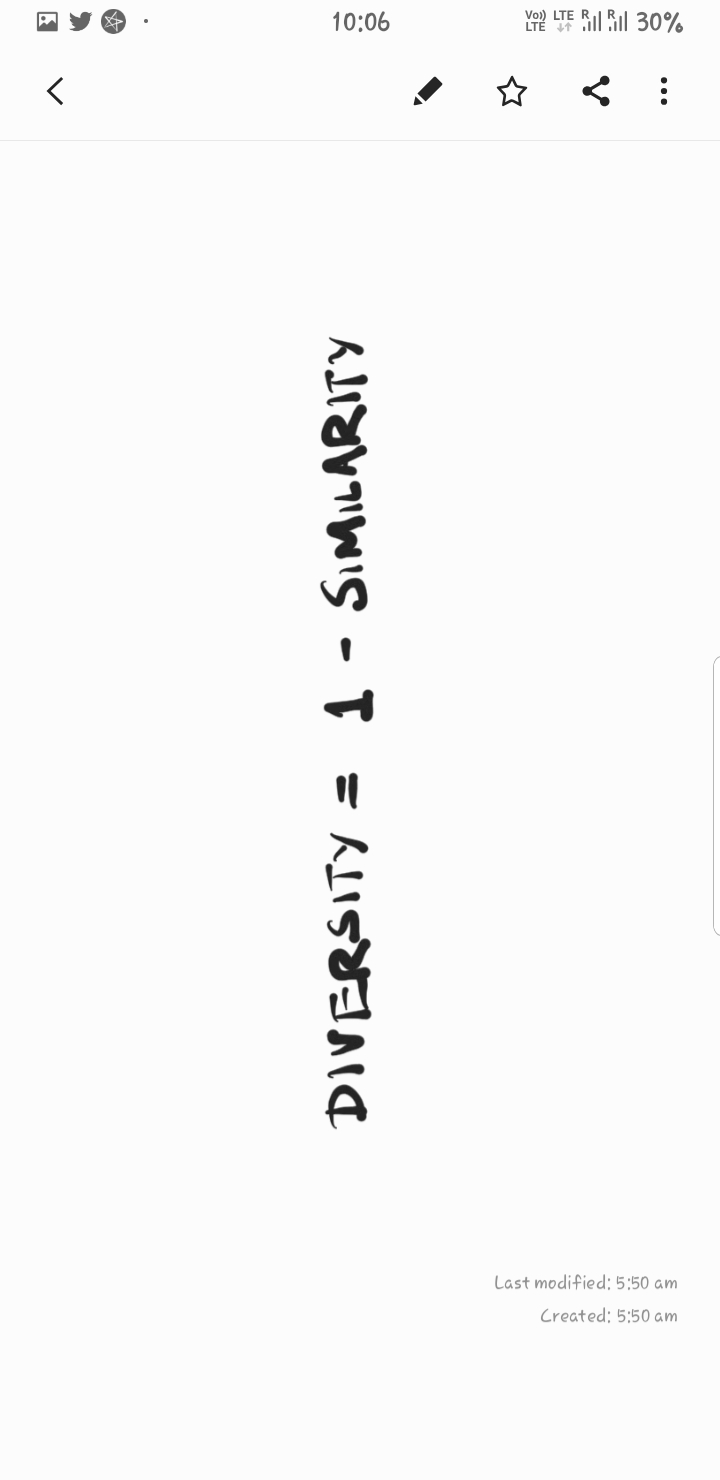 10:06
Vo)) LTE LTE R R 30%
DIVERSITY = 1 - SIMILARITY
Last modified: 5:50 am
Created: 5:50 am